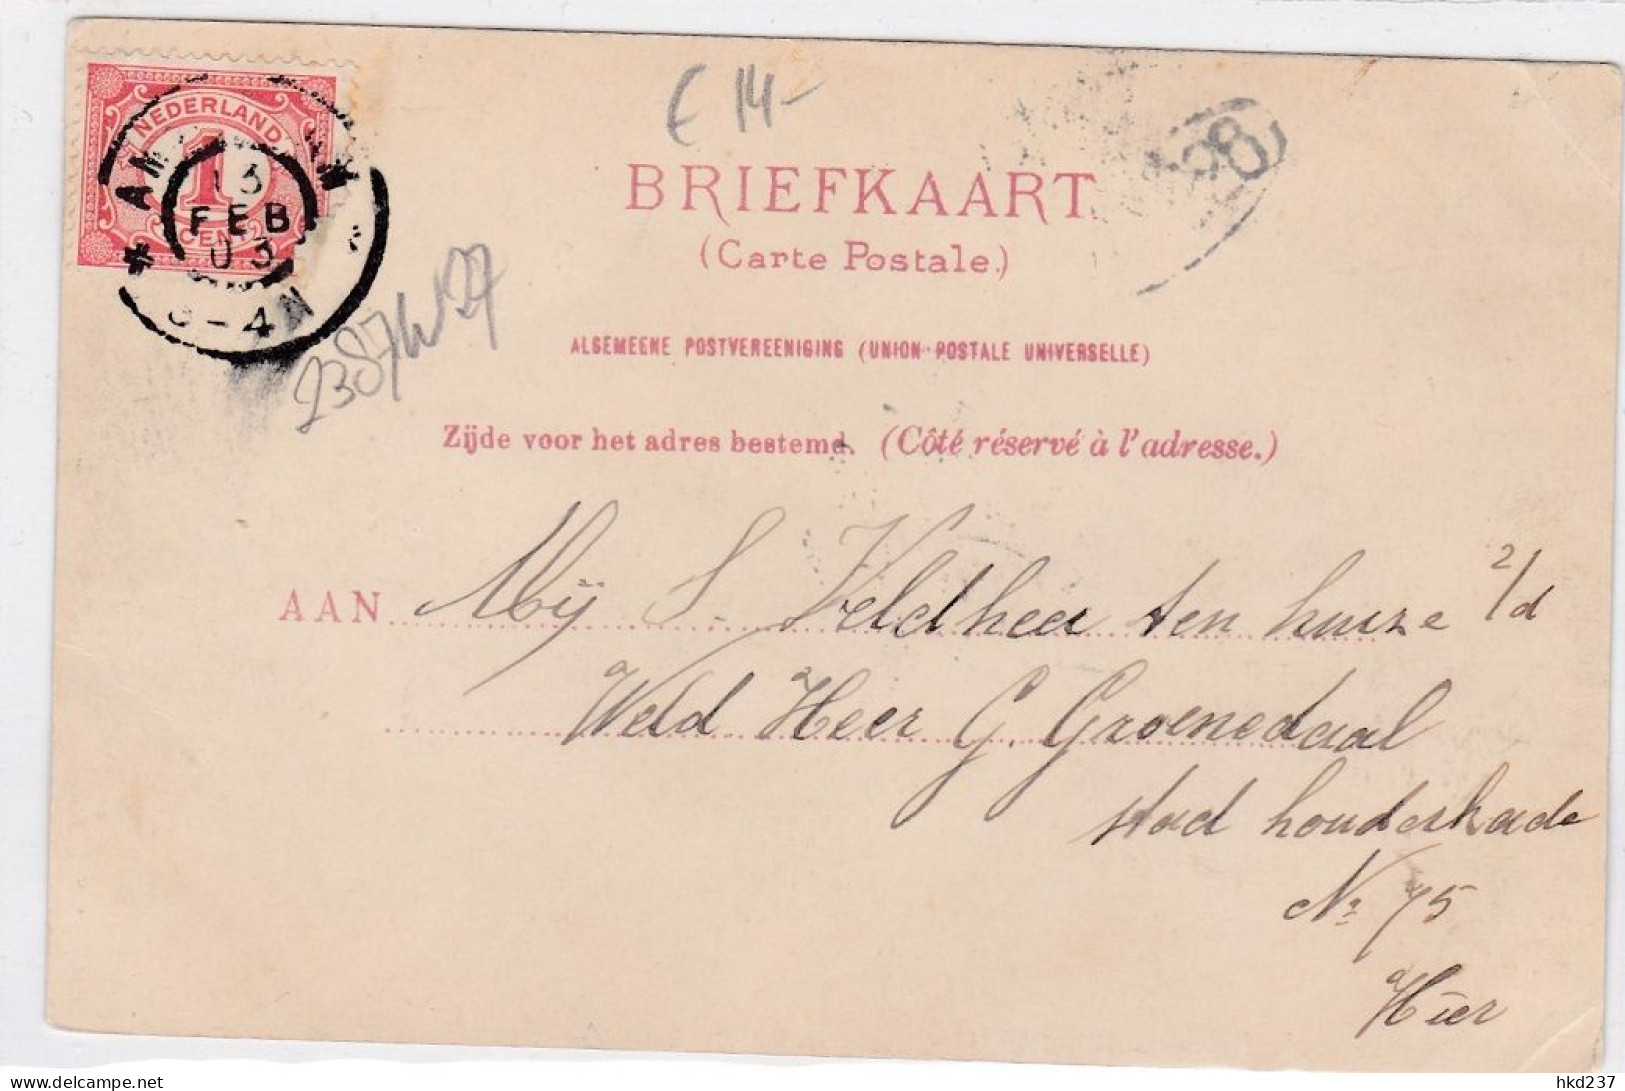 € 14-
NEDERLAND
1
CENT
13
FEB
03
3-4 N
2387/W27
BRIEFKAART
(Carte Postale.)
ALGEMEENE POSTVEREENIGING (UNION POSTALE UNIVERSELLE)
Zijde voor het adres bestemd. (Côté réservé à l'adresse.)
AAN Mij S. Veldheer ten huize v/d
Weld Heer G. Groenedaal
stad houderskade
No 75
Hier
hkd237